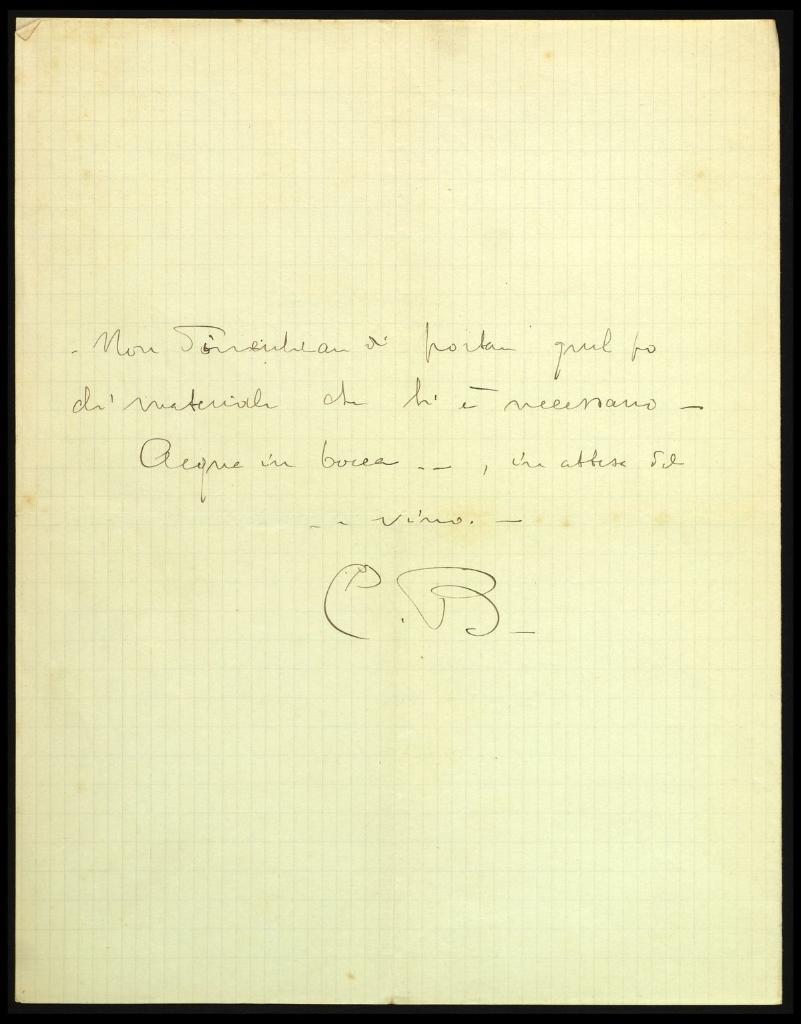 - Non dimenticare di portare quel po
di materiale che ti è necessario -
Acqua in bocca ..., in attesa del
... vino. -
C. B. -